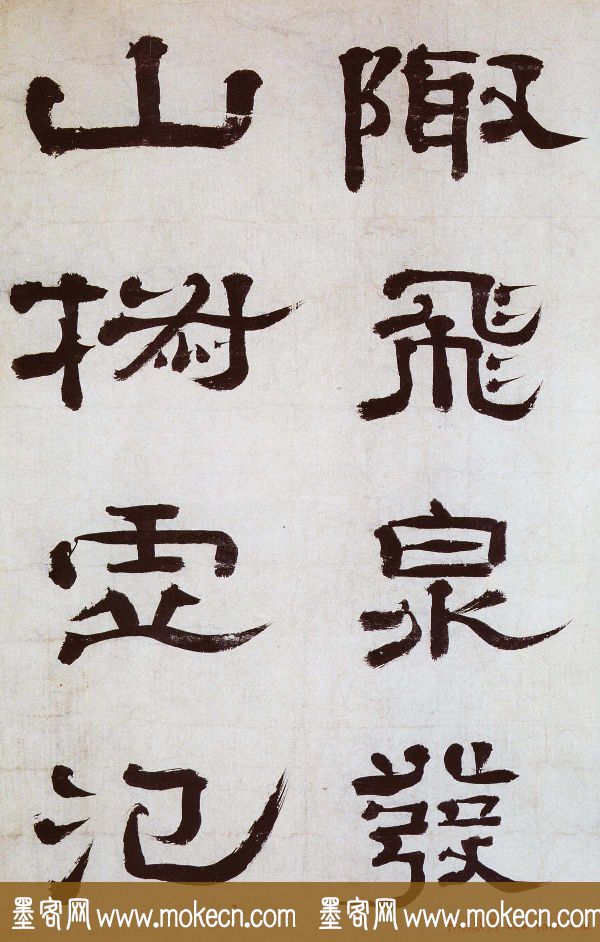 陬飛泉發
山榭虛汜
墨客网 www.mokecn.com 墨客网 www.mokecn.com